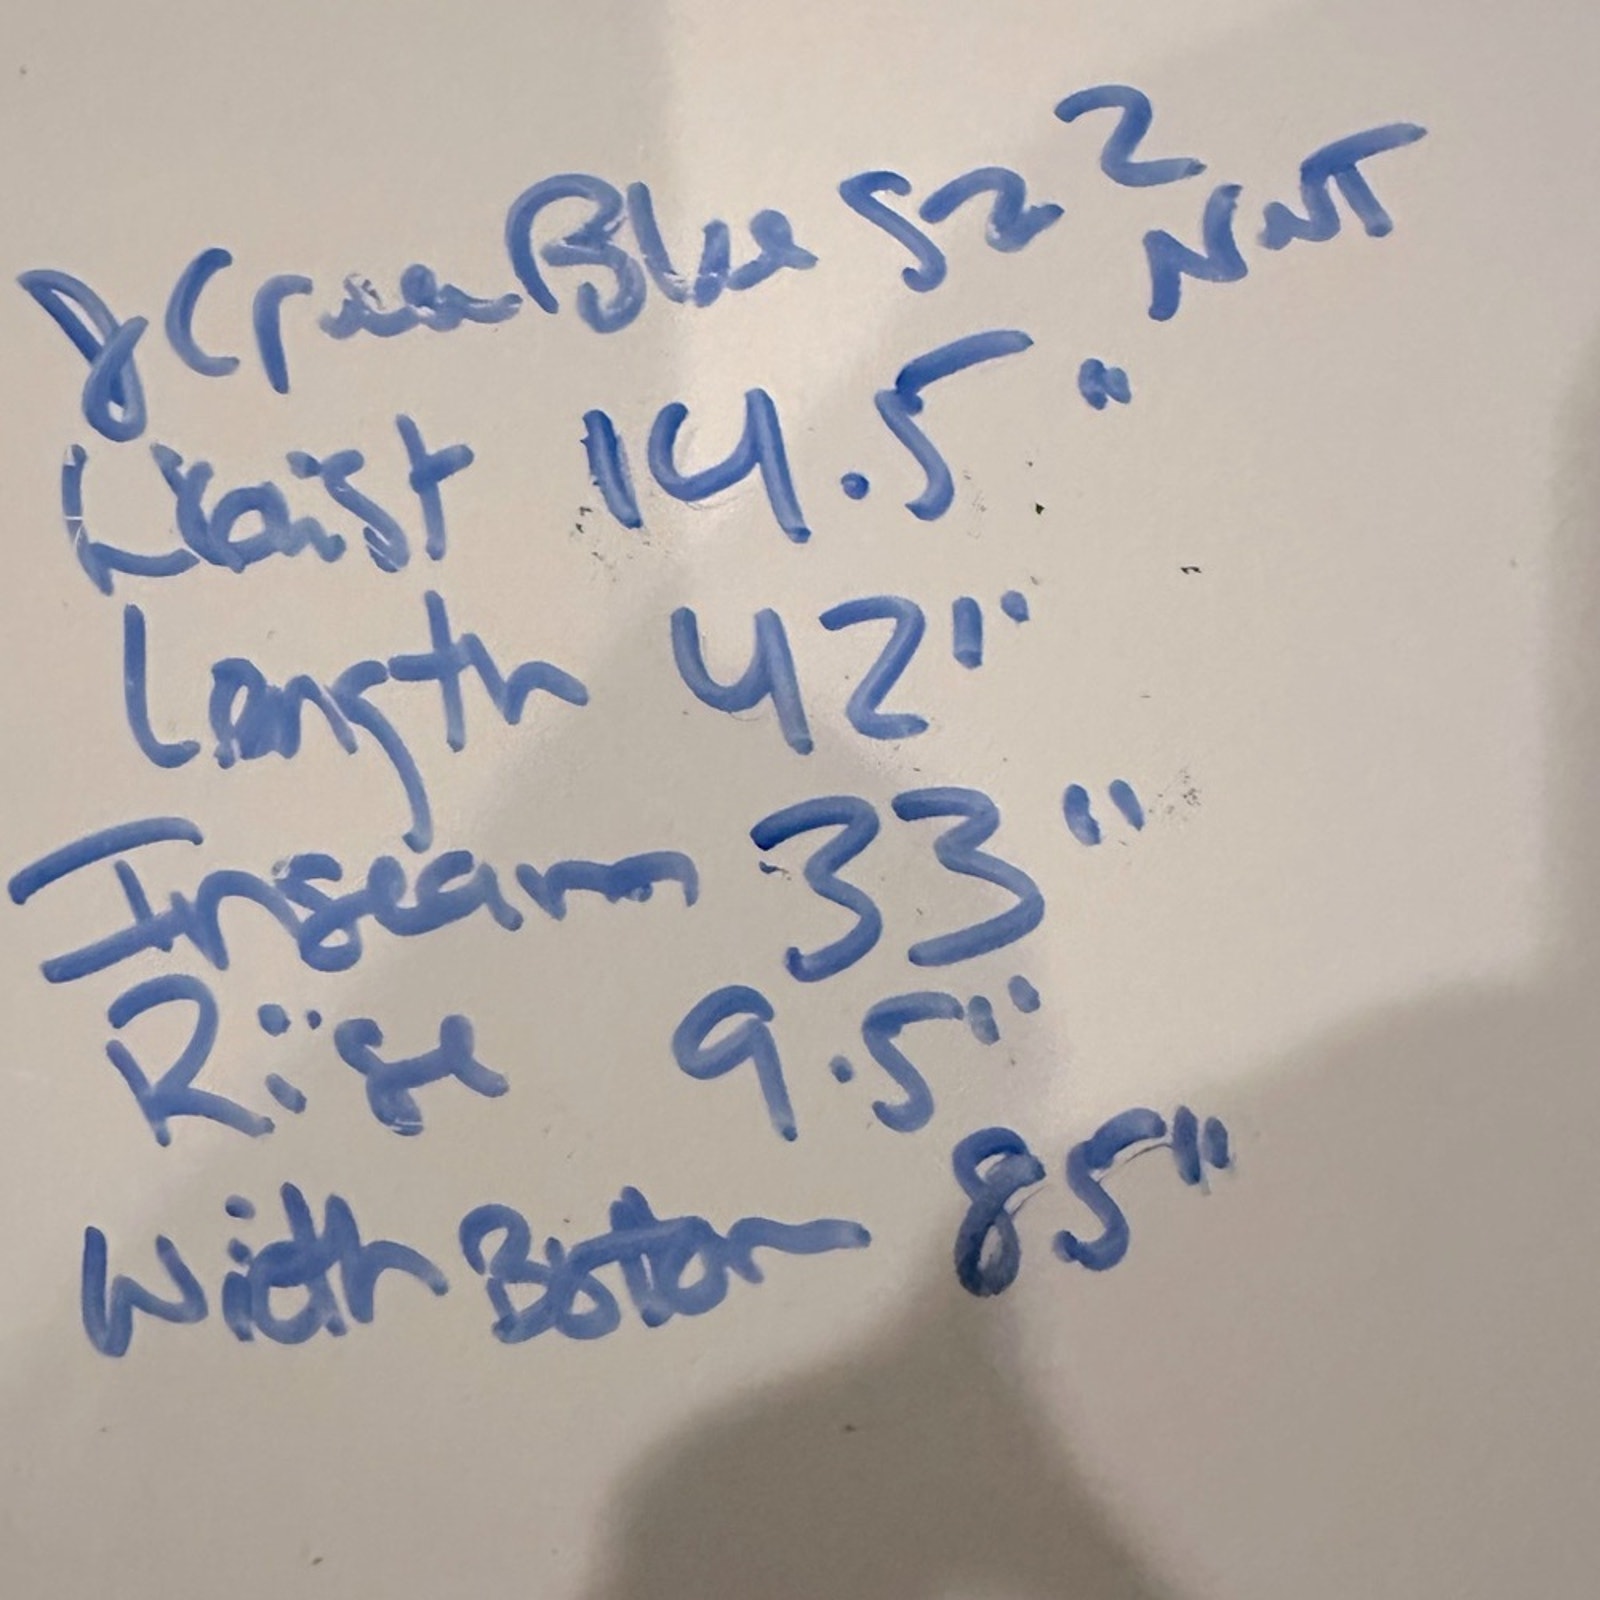 JCrew Blue Sz 2 NWT
Waist 14.5"
Length 42"
Inseam 33"
Rise 9.5"
Width Bottom 85"